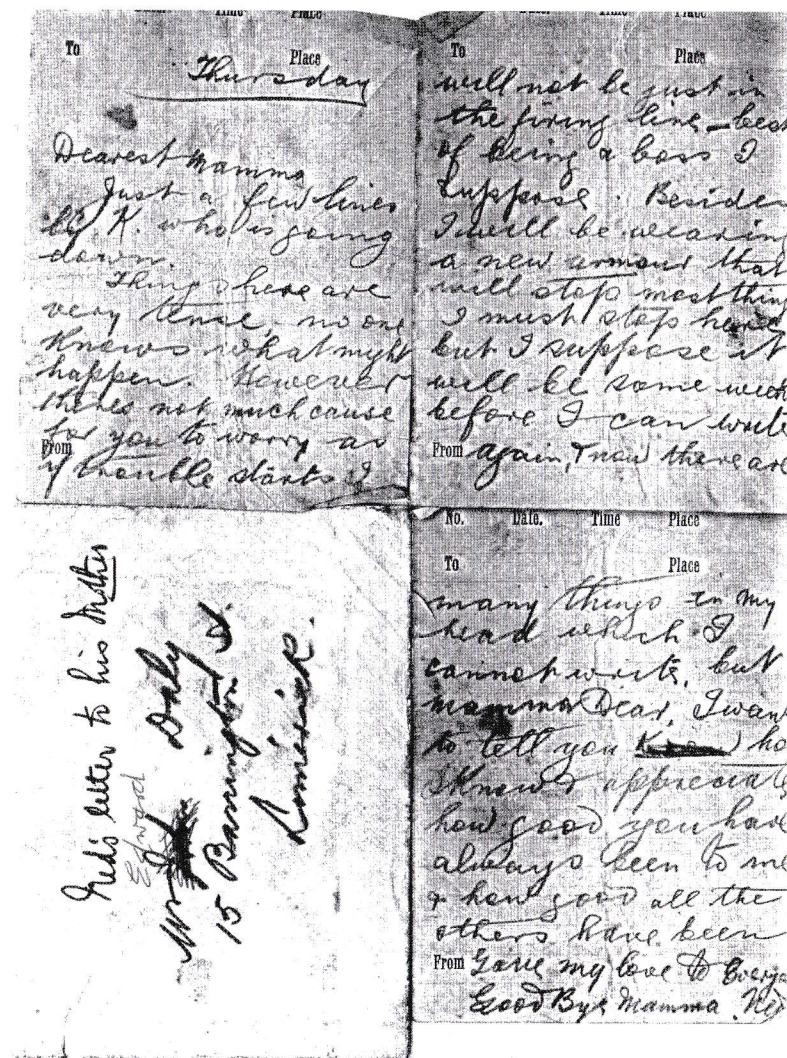 To Place
Thursday
Dearest Mamma
Just a few lines
by K. who is going
down.
Things here are
very tense, no one
knows what might
happen. However
there's not much cause
for you to worry as
From
if trouble starts I
To Place
will not be just in
the firing line – best
of being a boss I
suppose. Besides
I will be wearing
a new armour that
will stop most thing
I must stop here
but I suppose it
will be some week
before I can write
From again, I now there are
No. Date. Time Place
To Place
many things in my
head which I
cannot write, but
Mamma Dear, I wan
to tell you ho
I know & appreciate
how good you have
always been to me
& how good all the
others have been
From Give my love to Everyo
Good Bye Mamma. Ned
Ned's letter to his Mother
Edward
Mrs Daly
15 Barrington St.
Limerick.